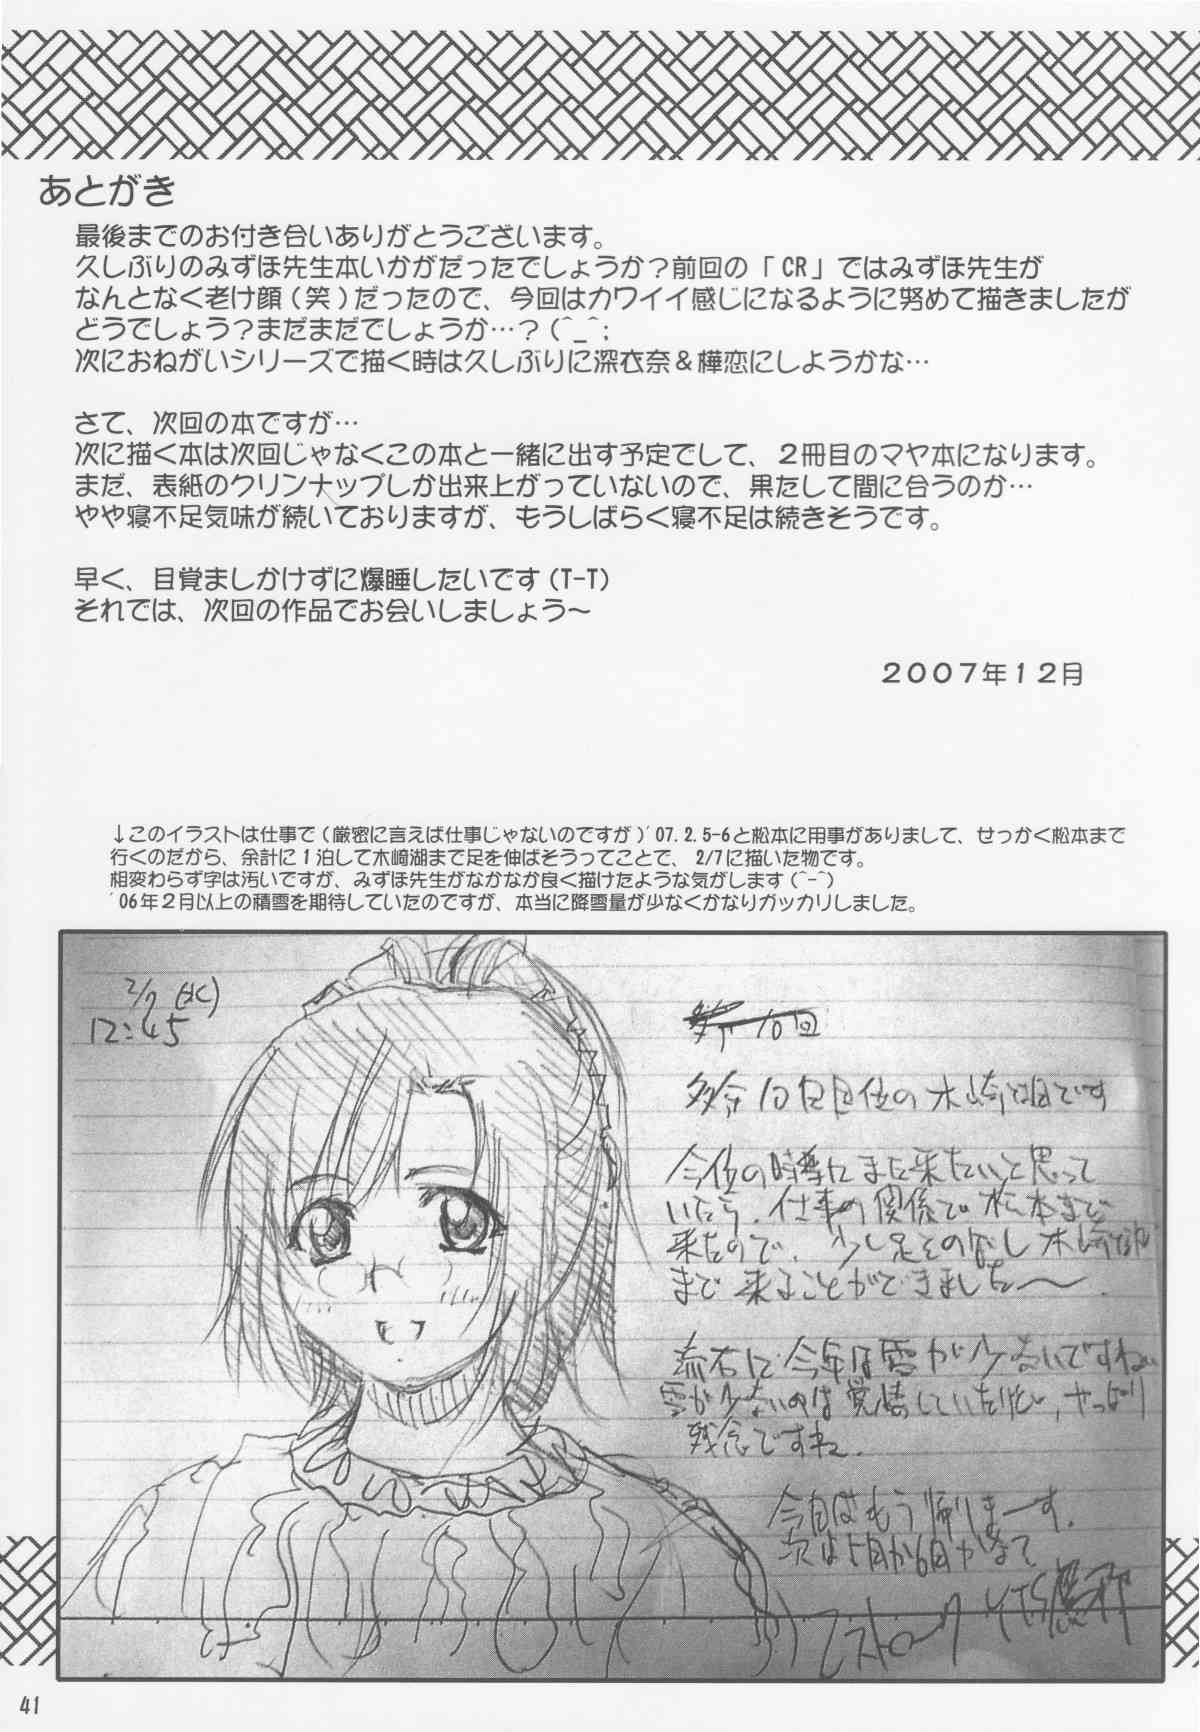 あとがき
最後までのお付き合いありがとうございます。
久しぶりのみずほ先生本いかがだったでしょうか？前回の「CR」ではみずほ先生が
なんとなく老け顔(笑)だったので、今回はカワイイ感じになるように努めて描きましたが
どうでしょう？まだまだでしょうか…？(^_^;
次におねがいシリーズで描く時は久しぶりに深衣奈＆樺恋にしようかな…
さて、次回の本ですが…
次に描く本は次回じゃなくこの本と一緒に出す予定でして、２冊目のマヤ本になります。
まだ、表紙のクリンナップしか出来上がっていないので、果たして間に合うのか…
やや寝不足気味が続いておりますが、もうしばらく寝不足は続きそうです。
早く、目覚ましかけずに爆睡したいです(T-T)
それでは、次回の作品でお会いしましょう～
２００７年１２月
↓このイラストは仕事で(厳密に言えば仕事じゃないのですが)'07.2.5-6と松本に用事がありまして、せっかく松本まで
行くのだから、余計に１泊して木崎湖まで足を伸ばそうってことで、2/7に描いた物です。
相変わらず字は汚いですが、みずほ先生がなかなか良く描けたような気がします(^-^)
'06年２月以上の積雪を期待していたのですが、本当に降雪量が少なくかなりガッカリしました。
2/7 (水)
12:45
10回
多分10回目位の木崎湖です
今位の時季にまた来たいと思って
いたら、仕事の関係で松本まで
来たので、少し足をのばし木崎湖
まで来ることができました～.
流石に今年は雪が少ないですねぃ
雪が少ないのは覚悟していたけど、やっぱり
残念ですね.
今日はもう帰りまーす.
次は5月か6月かなって
ストローク
41